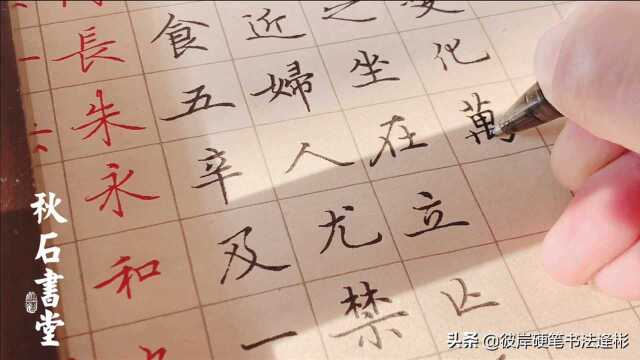 長朱永和
食五辛及一
近婦人尤禁
之坐在立止
化萬
秋石書堂
头条 @彼岸硬笔书法逢彬